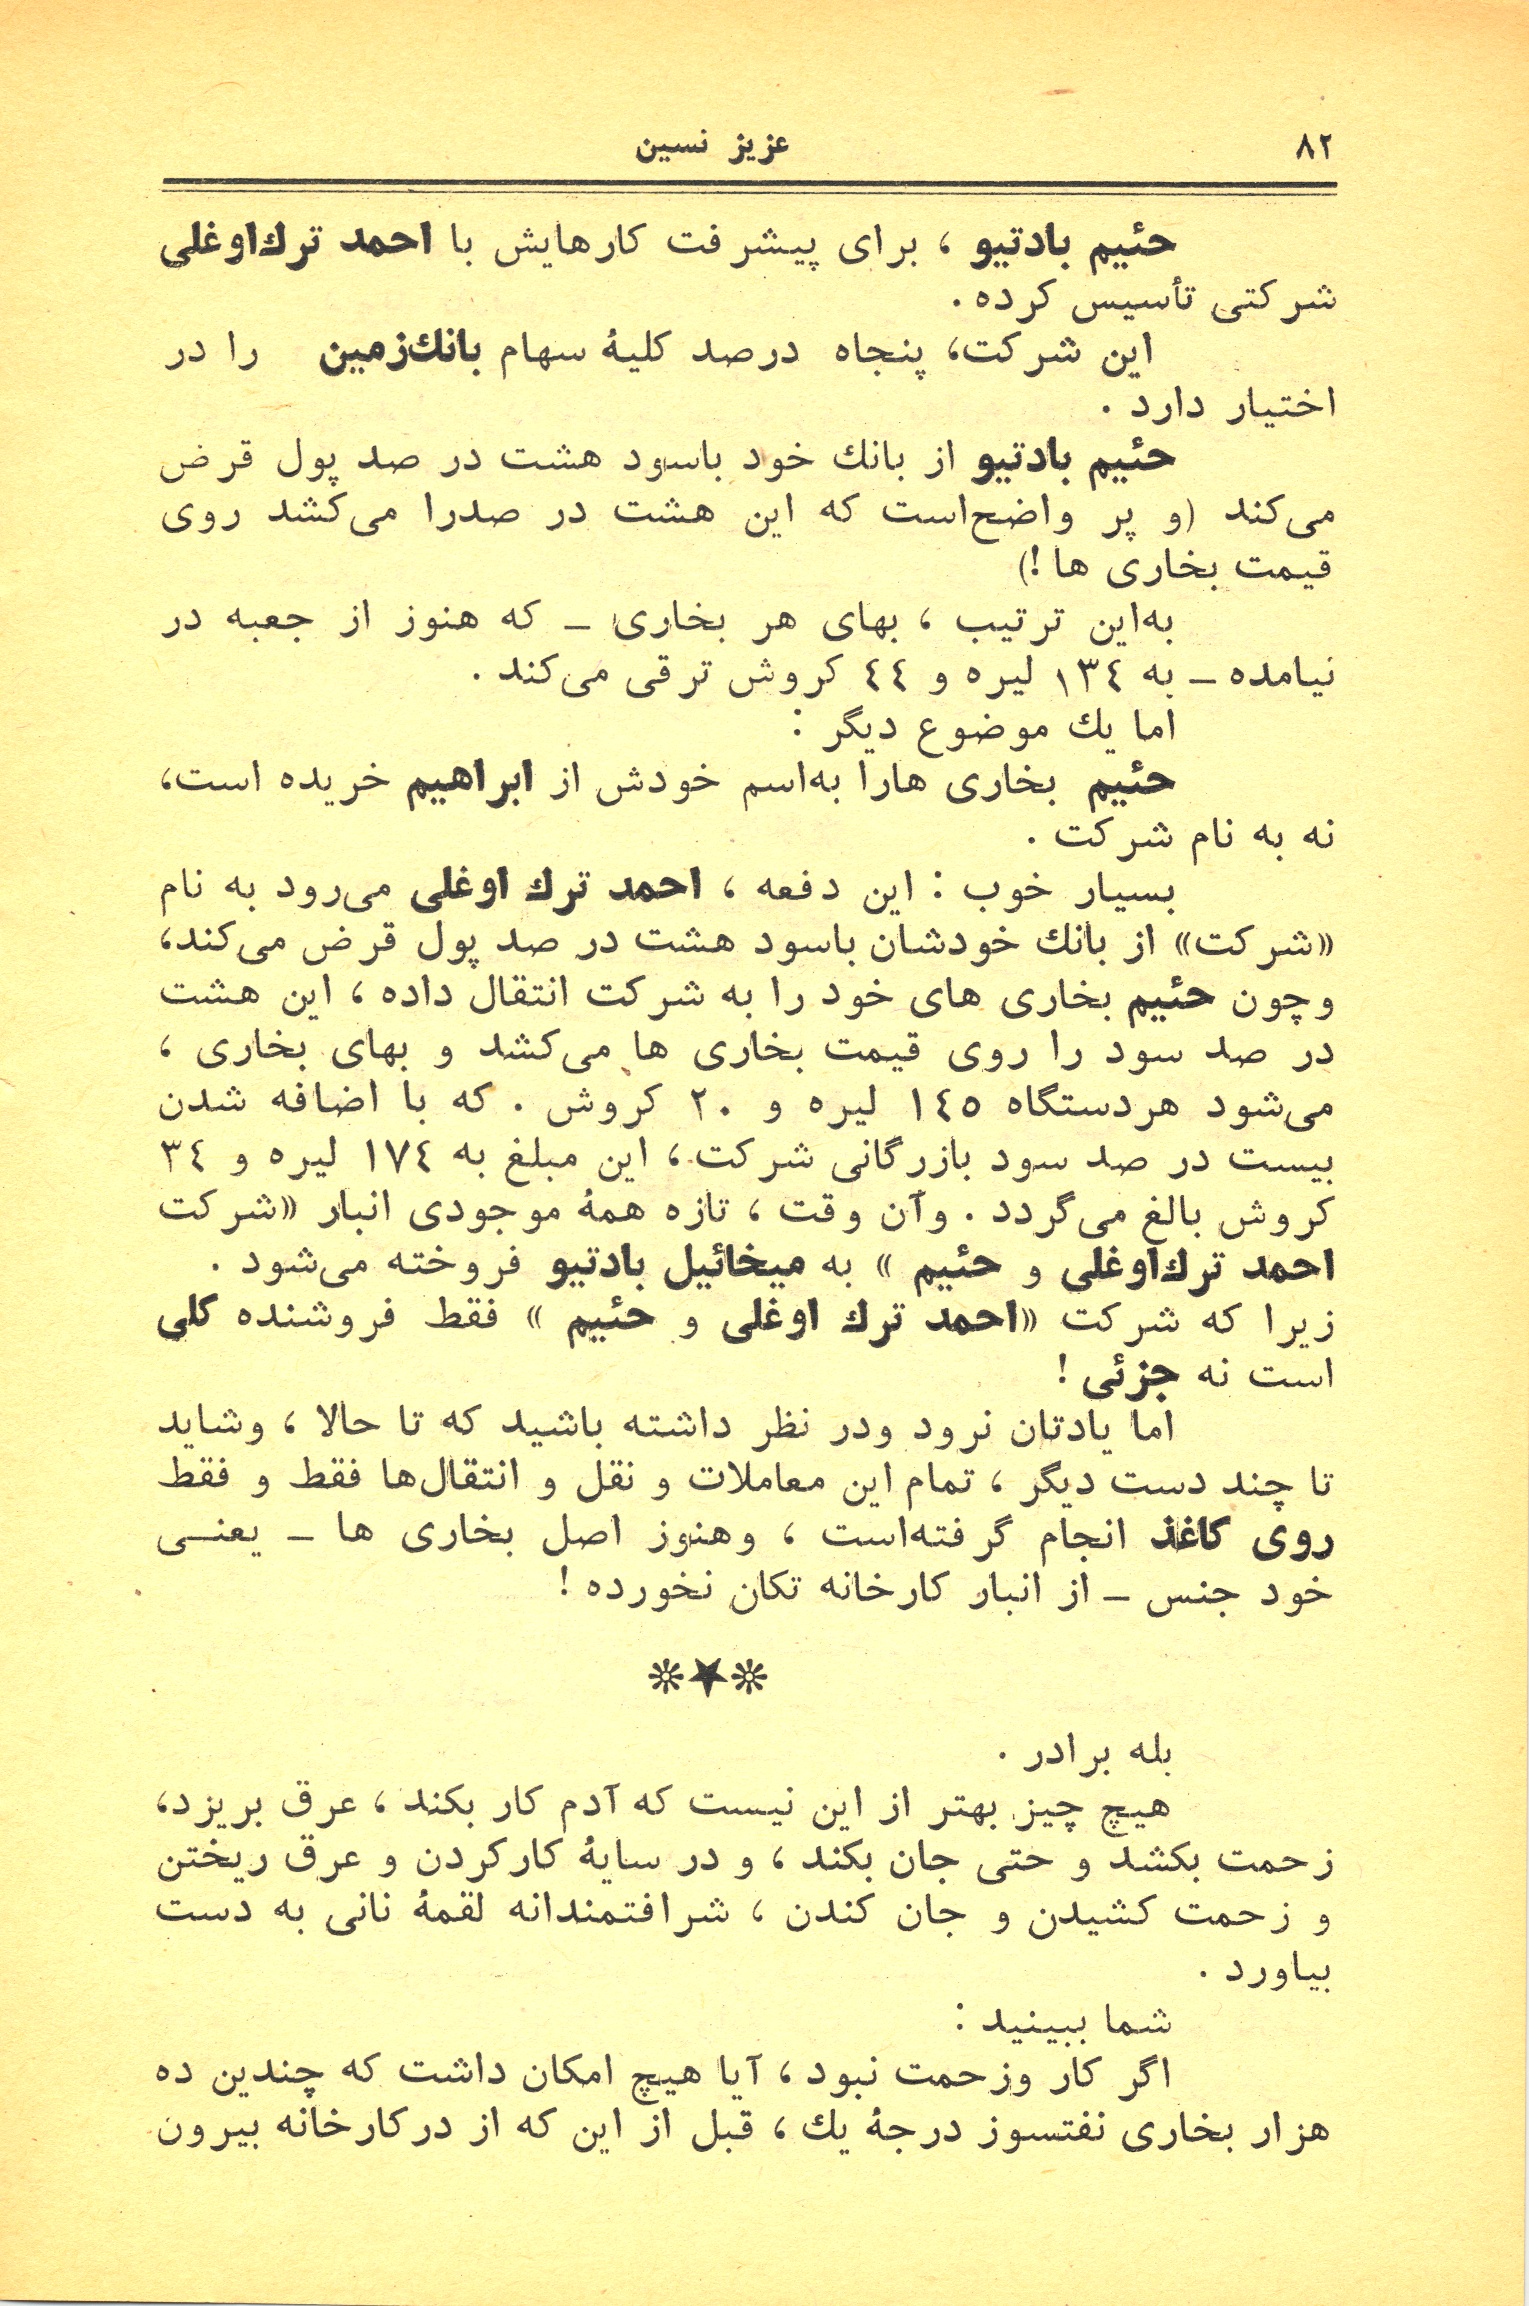 ۸۲
عزیز نسین
حئیم بادتیو ، برای پیشرفت کارهایش با احمد ترك‌اوغلی
شرکتی تأسیس کرده .
این شرکت، پنجاه درصد کلیهٔ سهام بانك‌زمین را در
اختیار دارد .
حئیم بادتیو از بانك خود باسود هشت در صد پول قرض
می‌کند (و پر واضح‌است که این هشت در صدرا می‌کشد روی
قیمت بخاری ها !)
به‌این ترتیب ، بهای هر بخاری ـ که هنوز از جعبه در
نیامده ـ به ۱۳٤ لیره و ٤٤ کروش ترقی می‌کند .
اما یك موضوع دیگر :
حئیم بخاری هارا به‌اسم خودش از ابراهیم خریده است،
نه به نام شرکت .
بسیار خوب : این دفعه ، احمد ترك اوغلی می‌رود به نام
«شرکت» از بانك خودشان باسود هشت در صد پول قرض می‌کند،
وچون حئیم بخاری های خود را به شرکت انتقال داده ، این هشت
در صد سود را روی قیمت بخاری ها می‌کشد و بهای بخاری ،
می‌شود هردستگاه ۱٤٥ لیره و ۲۰ کروش . که با اضافه شدن
بیست در صد سود بازرگانی شرکت ، این مبلغ به ۱۷٤ لیره و ۳٤
کروش بالغ می‌گردد . وآن وقت ، تازه همهٔ موجودی انبار «شرکت
احمد ترك‌اوغلی و حئیم » به میخائیل بادتیو فروخته می‌شود .
زیرا که شرکت «احمد ترك اوغلی و حئیم » فقط فروشنده کلی
است نه جزئی !
اما یادتان نرود ودر نظر داشته باشید که تا حالا ، وشاید
تا چند دست دیگر ، تمام این معاملات و نقل و انتقال‌ها فقط و فقط
روی کاغذ انجام گرفته‌است ، وهنوز اصل بخاری ها ـ یعنــی
خود جنس ـ از انبار کارخانه تکان نخورده !
❊★❊
بله برادر .
هیچ چیز بهتر از این نیست که آدم کار بکند ، عرق بریزد،
زحمت بکشد و حتی جان بکند ، و در سایهٔ کارکردن و عرق ریختن
و زحمت کشیدن و جان کندن ، شرافتمندانه لقمهٔ نانی به دست
بیاورد .
شما ببینید :
اگر کار وزحمت نبود ، آیا هیچ امکان داشت که چندین ده
هزار بخاری نفتسوز درجهٔ یك ، قبل از این که از درکارخانه بیرون